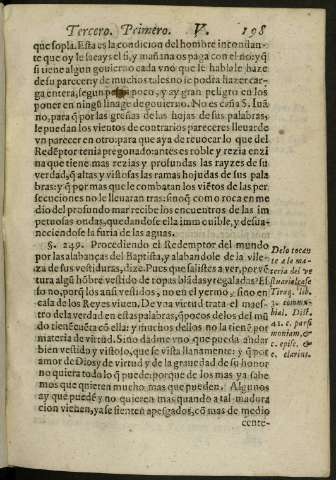 Tercero. Primero. V. 198
que sopla. Esta es la condicion del hombre inconstan-
te que oy le sacays el si, y mañana os paga con el no: y q̃
si tiene algun gouierno cada vno que le habla le haze
de su parecer: y de muchos tales no se podra hazer car-
ga entera, segun poco, y ay gran peligro en los
poner en ningũ linage de gouierno. No es caña S. Iuã
no, para q̃ por las greñas de las hojas de sus palabras,
le puedan los vientos de contrarios pareceres lleuar de
vn parecer en otro: para que aya de reuocar lo que del
Redẽptor tenia pregonado: antes es roble y rezia enzi
na que tiene mas rezias y profundas las rayzes de su
verdad, q̃ altas y vistosas las ramas hojudas de sus pala
bras: y q̃ por mas que le combatan los viẽtos de las per
secuciones no le lleuaran tras sino q̃ como roca en me
dio del profundo mar recibe los encuentros de las im
petuosas ondas, quedandose ella immouible, y desua-
neciendose la furia de las aguas.
§. 249. Procediendo el Redemptor del mundo
por las alabanças del Baptista, y alabandole de la vile-
za de sus vestiduras, dize. Pues que salistes a ver, por vẽ
tura algũ hõbre vestido de ropas blãdas y regaladas? Es
so no, porq̃ los ansi vestidos, no en el yermo, sino en
casa de los Reyes viuen. De vna virtud trata el maes-
tro de la verdad en estas palabras, q̃ pocos de los del mũ
do tienẽ cuẽta cõ ella: y muchos dellos no la tienẽ por
materia de virtud. Sino dadme vno que pueda andar
bien vestido y vistoso, que se vista llanamente: y q̃ por
amor de Dios y de virtud y de la grauedad de su honor
no quiera todo lo q̃ puede: porque de los mas ya sabe
mos que quieren mucho mas que pueden. Algunos
ay que puedẽ y no quieren mas quando a tal madura
cion vienen, ya se sienten apesgados, cõ mas de medio
cente-
Delo tocan
te a la ma-
teria del ve
stuario lease
Tiraq. lib.
3. connu-
bial. Dist.
41. c. par si
moniam, &
c. episc. &
c. clericus.